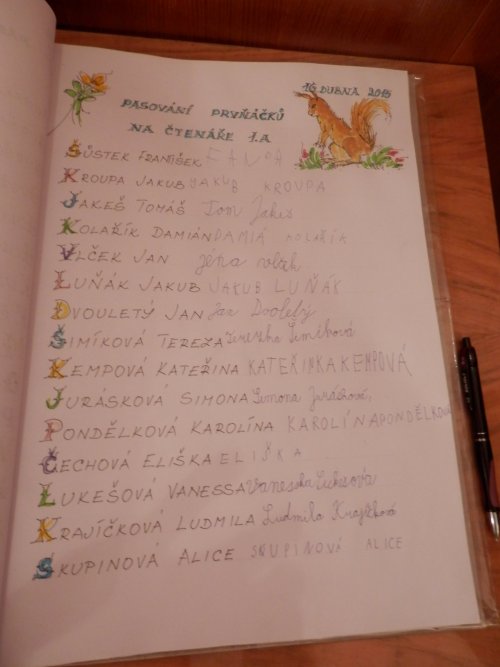 16 DUBNA 2015
PASOVÁNÍ PRVŇÁČKŮ
NA ČTENÁŘE 1.A
ŠŮSTEK FRANTIŠEK FANDA
KROUPA JAKUB JAKUB KROUPA
JAKEŠ TOMÁŠ Tom Jakeš
KOLAŘÍK DAMIÁN DAMIÁ KOLAŘÍK
VLČEK JAN jéňa vlček
LUŇÁK JAKUB JAKUB LUŇÁK
DVOULETÝ JAN Jan
ŠIMÍKOVÁ TEREZA Terezka Šimíková
KEMPOVÁ KATEŘINA KATEŘINKA KEMPOVÁ
JURÁSKOVÁ SIMONA Simona Jurásková
PONDĚLKOVÁ KAROLÍNA KAROLÍNA PONDĚLKOVÁ
ČECHOVÁ ELIŠKA ELIŠKA
LUKEŠOVÁ VANESSA Vanesska Lukešová
KRAJÍČKOVÁ LUDMILA Ludmila Krajíčková
SKUPINOVÁ ALICE SKUPINOVÁ ALICE